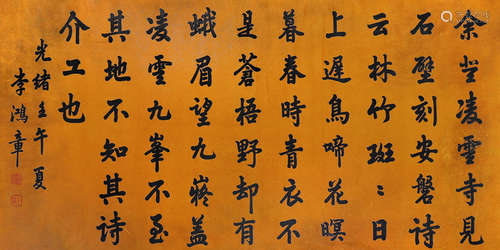 余登凌雲寺見
石壁刻安磐詩
云林竹斑二日
上遲鳥啼花暝
暮春時青衣不
是蒼梧野却有
蛾眉望九嶷蓋
凌雲九峯不至
其地不知其詩
介工也
光緒壬午夏
李鴻章